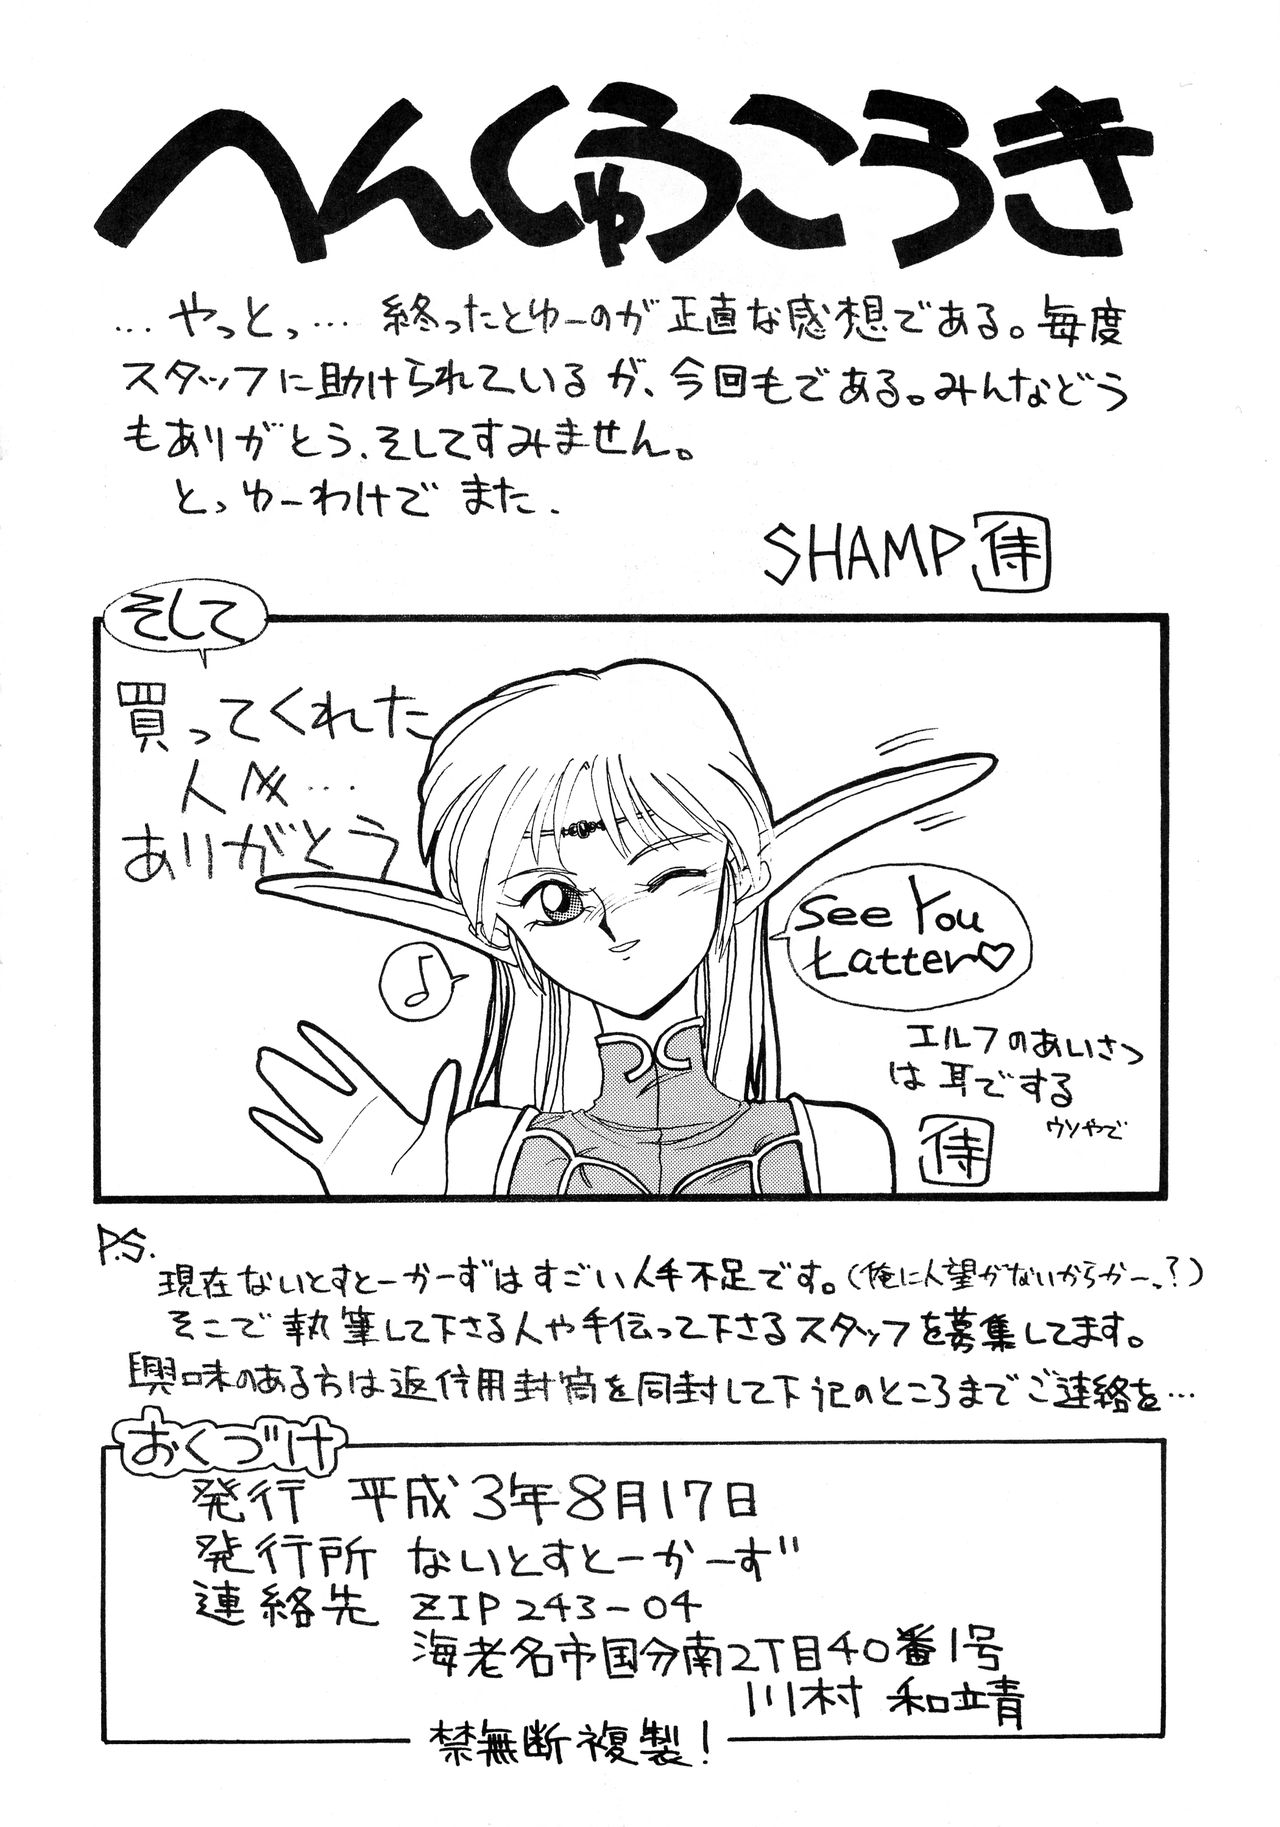 へんしゅうこうき
…やっとっ…終ったとゆーのが正直な感想である。毎度
スタッフに助けられているが、今回もである。みんなどう
もありがとう、そしてすみません。
とっゆーわけでまた.
SHAMP 侍
そして
買ってくれた
人々…
ありがとう
See You
Latter♡
♪
エルフのあいさつ
は耳でする
ウソやで
侍
P.S.
現在ないとすとーかーずはすごい人手不足です。(俺に人望がないからかー、?)
そこで執筆して下さる人や手伝って下さるスタッフを募集してます。
興味のある方は返信用封筒を同封して下記のところまでご連絡を…
おくづけ
発行 平成3年8月17日
発行所 ないとすとーかーず
連絡先 ZIP 243-04
海老名市国分南2丁目40番1号
川村 和靖
禁無断複製!